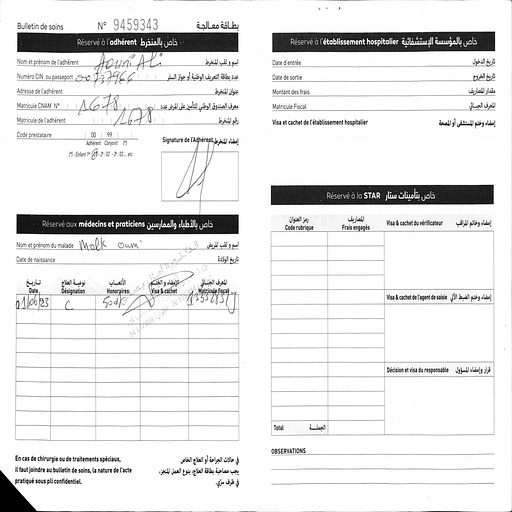 Bulletin de soins N° 9459343 بطاقة معالجة
Réservé à l'adhérent خاص بالمنخرط
Nom et prénom de l'adhérent Aouni Ali اسم و لقب المنخرط
Numéro CIN ou passeport عدد بطاقة التعريف الوطنية أو جواز السفر
Adresse de l'adhérent عنوان المنخرط
Matricule CNAM N° 1678 معرف الصندوق الوطني للتأمين على المرض عدد
Matricule de l'adhérent 1678 رقم المنخرط
Code prestataire 00 99
Adhérent Conjoint (*)
(*) Enfant 1 : 01 - 2 : 02 - 3 : 03 ... etc
Signature de l'Adhérent إمضاء المنخرط
Réservé aux médecins et praticiens خاص بالأطباء والممارسين
Nom et prénom du malade Malk oumi اسم و لقب المريض
Date de naissance تاريخ الولادة
تاريخ نوعية العلاج الأتعاب الإمضاء و الختم المعرف الجبائي
Date Désignation Honoraires Visa & cachet Matricule fiscal
01/06/23 C
En cas de chirurgie ou de traitements spéciaux,
il faut joindre au bulletin de soins, la nature de l'acte
pratiqué sous pli confidentiel.
في حالات الجراحة أو العلاج الخاص
يجب مصاحبة بطاقة العلاج، بنوع العمل المنجز،
في ظرف سري.
Réservé à l'établissement hospitalier خاص بالمؤسسة الإستشفائية
Date d'entrée تاريخ الدخول
Date de sortie تاريخ الخروج
Montant des frais مقدار المصاريف
Matricule Fiscal المعرف الجبائي
Visa et cachet de l'établissement hospitalier إمضاء وختم المستشفى أو المصحة
Réservé à la STAR خاص بتأمينات ستار
رمز العنوان المصاريف
Code rubrique Frais engagés
Visa & cachet du vérificateur إمضاء وخاتم المراقب
Visa & cachet de l'agent de saisie إمضاء وختم الضبط الآلي
Décision et visa du responsable قرار وإمضاء المسؤول
Total الجملة
OBSERVATIONS